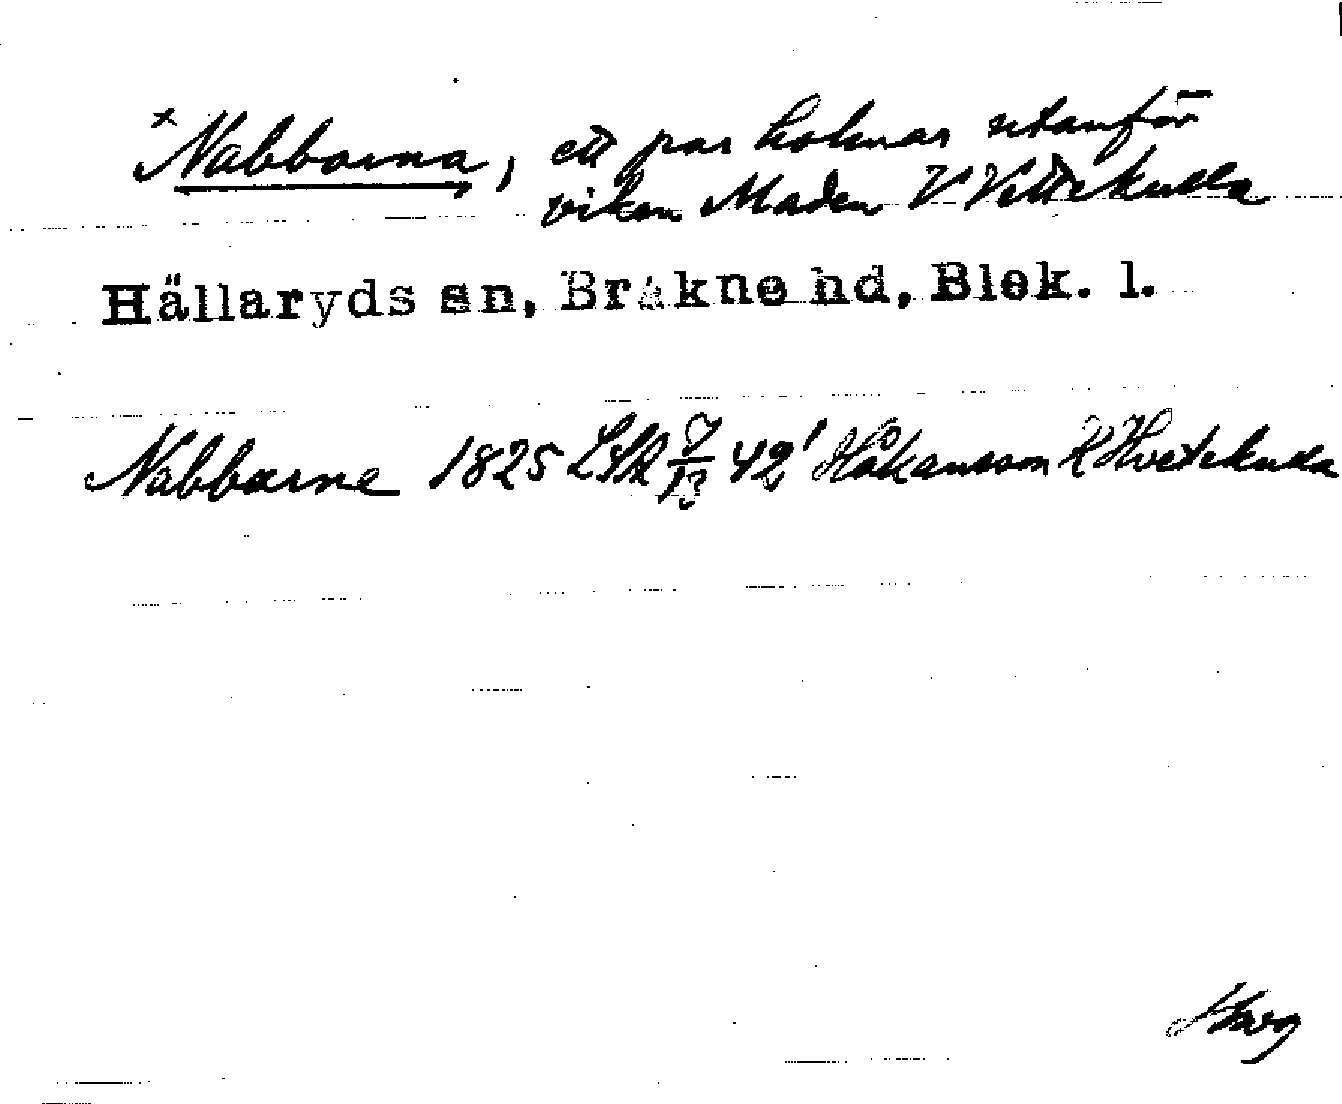 × Nabbarna, ett par holmar utanför
viken Maden V Vettekulla
Hällaryds sn, Bräkne hd, Blek. l.
Nabbarne 1825 LSA 7/13 42' Håkansson K Hvetekulla